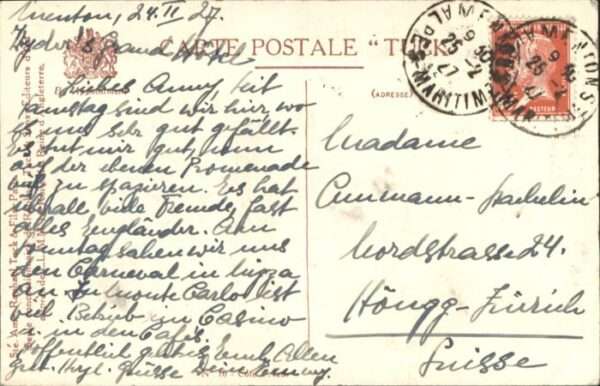 Menton, 24.II 27.
Grand Hotel
CARTE POSTALE "TUCK"
Liebes Anny, seit
Samstag sind wir hier, wo
es uns sehr gut gefällt.
Es tut mir gut, nun
auf der ebenen Promenade
viel zu spazieren. Es hat
überall viele Fremde, fast
alles Engländer. Am
Sonntag sahen wir uns
den Carneval in Nizza
an. In Monte Carlo ist
viel Betrieb im Casino
u. in den Cafés.
Hoffentlich geht es Euch Allen
gut. Hrzl. Grüsse Dein
(ADRESSE)
Madame
Ammann-
Nordstrasse 24.
Höngg-Zürich
Suisse
MENTON
ALPES MARITIMES
9 30
25 - 2
27
MENTON
9 30
25 - 2
PASTEUR